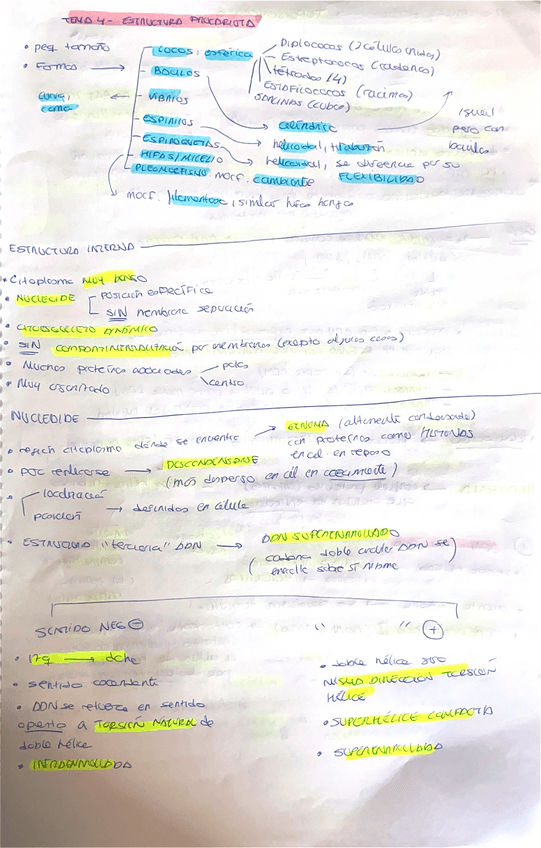 TEMA 4 - ESTRUCTURA PROCARIOTA
• peq tamaño
• Formas →
COCOS: esférica
Diplococos (2 células unidas)
Estreptococos (cadenas)
tétradas (4)
Estafilococos (racimos)
SARCINAS (cubos)
BACILOS
cilíndrica
igual pero con bacilos
VIBRIOS
curva, coma
ESPIRILOS
helicoidal, tirabuzón
ESPIROQUETAS
helicoidal, se diferencia por su FLEXIBILIDAD
HIFAS/MICELIO
PLEOMORFISMO morf. cambiante
morf. filamentosa, similar hifas hongos
ESTRUCTURA INTERNA
• Citoplasma MUY DENSO
• NUCLEOIDE
POSICIÓN ESPECÍFICA
SIN membrana separación
• CITOESQUELETO DINÁMICO
• SIN COMPARTIMENTALIZACIÓN por membranas (excepto algunos casos)
• Muchas proteínas asociadas
polos
centro
• Muy organizado
NUCLEOIDE
• región citoplasma dónde se encuentra → GENOMA (altamente condensado)
con proteínas como HISTONAS
en cel. en reposo
• para replicarse → DESCONDENSARSE
(más disperso en cél en crecimiento)
• localización
posición
→ definidos en célula
• ESTRUCTURA "terciaria" DDN → DDN SUPERENROLLADO
(cadena doble circular DDN se
enrolla sobre sí misma)
SENTIDO NEG ⊖
" " ⊕
• izq → dcha
• sentido
• DDN se retuerce en sentido
opuesto a TORSIÓN NATURAL de
doble hélice
• INFRAENROLLADA
• doble hélice
MISMA DIRECCIÓN TORSIÓN
HÉLICE
• SUPERHÉLICE COMPACTA
• SUPERENROLLADA